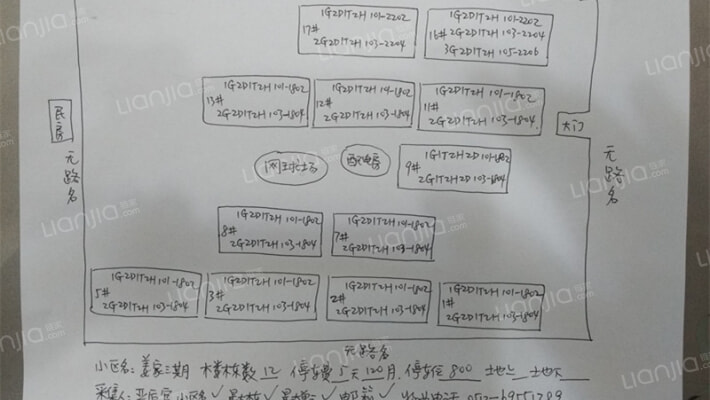 1G2D1T2H 101-2202
17#
2G2D1T2H 103-2204
1G2D1T2H 101-2202
16# 2G2D1T2H 103-2204
3G2D1T2H 105-2206
1G2D1T2H 101-1802
13#
2G2D1T2H 103-1804
1G2D1T2H 101-1802
12#
2G2D1T2H 103-1804
1G2D1T2H 101-1802
11#
2G2D1T2H 103-1804
民房
无路名
大门
无路名
网球场
配电房
1G1T2H2D 101-1802
9#
2G1T2H2D 103-1804
1G2D1T2H 101-1802
8#
2G2D1T2H 103-1804
1G2D1T2H 101-1802
7#
2G2D1T2H 103-1804
1G2D1T2H 101-1802
5#
2G2D1T2H 103-1804
1G2D1T2H 101-1802
3#
2G2D1T2H 103-1804
1G2D1T2H 101-1802
2#
2G2D1T2H 103-1804
1G2D1T2H 101-1802
1#
2G2D1T2H 103-1804
无路名
小区名: 姜家三期 楼栋数 12 停车费 5天 120月 停车位 800 土地上 土地下
采集人: 小区名 ✓
Lianjia.com 链家